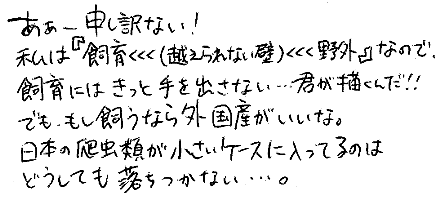 ああー申し訳ない!
私は『飼育<<<(越えられない壁)<<<野外』なので、
飼育にはきっと手を出さない…君が描くんだ!!
でも、もし飼うなら外国産がいいな。
日本の爬虫類が小さいケースに入ってるのは
どうしても落ちつかない…。